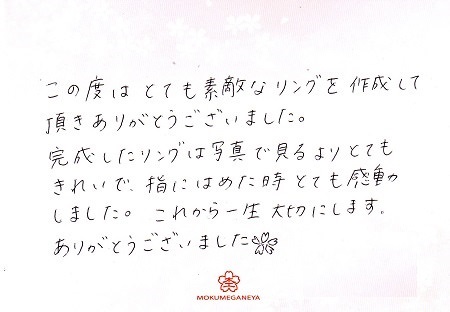 この度はとても素敵なリングを作成して
頂きありがとうございました。
完成したリングは写真で見るよりとても
きれいで、指にはめた時とても感動
しました。これから一生大切にします。
ありがとうございました
MOKUMEGANEYA